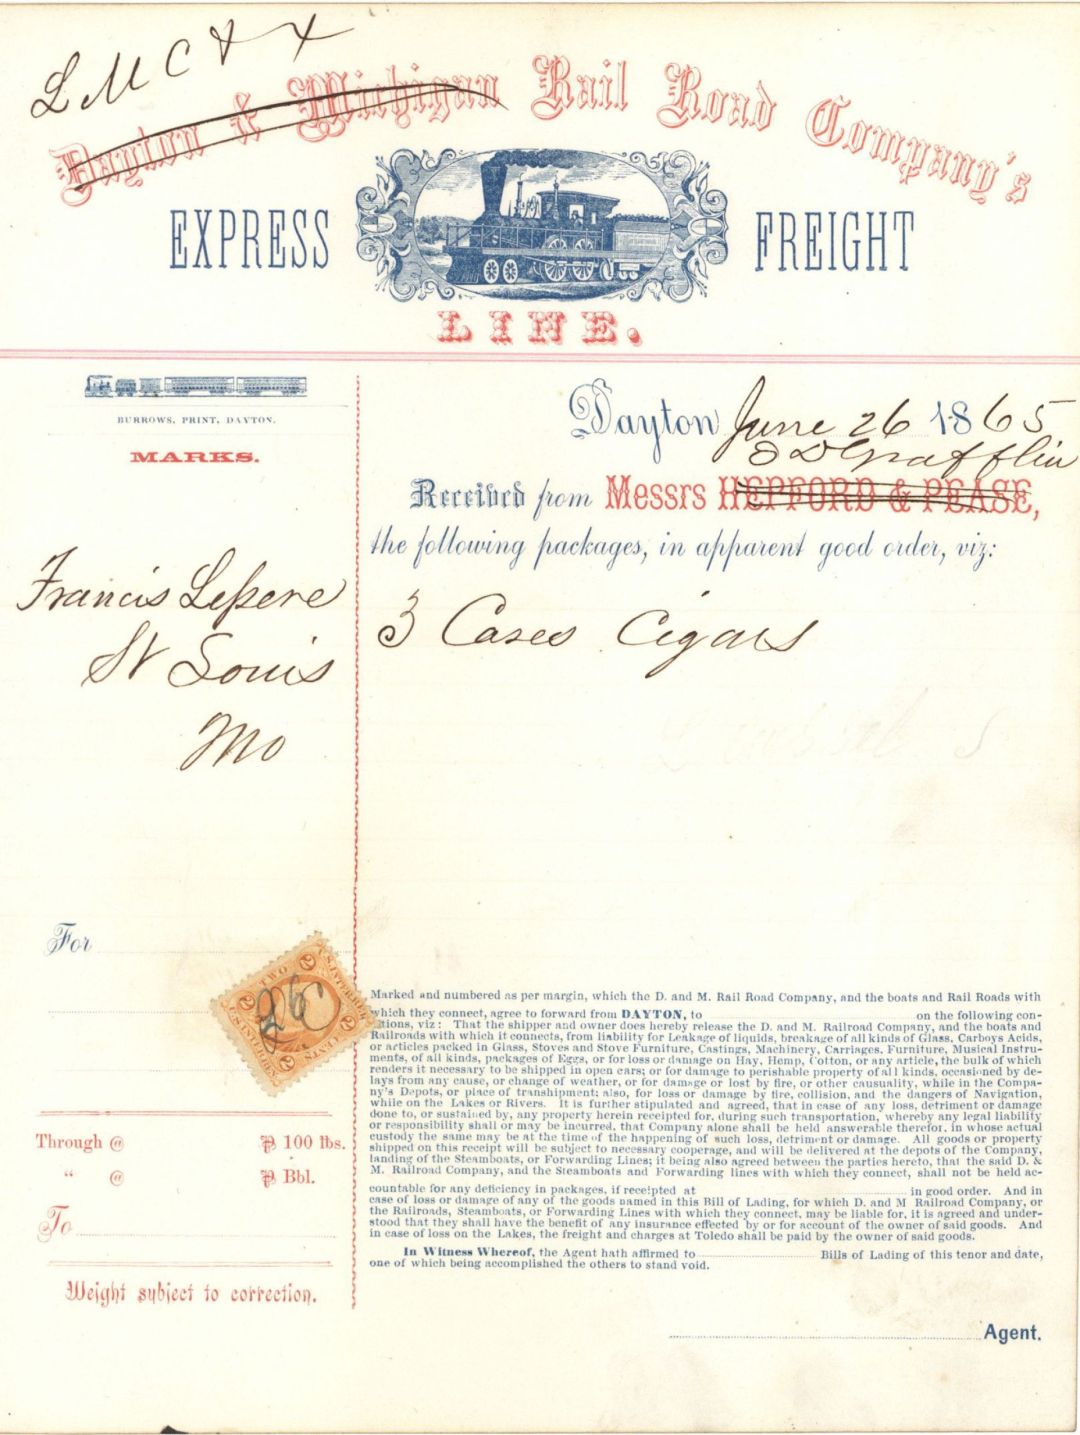 L M C & X
Dayton & Michigan Rail Road Company's
EXPRESS FREIGHT
LINE.
BURROWS, PRINT, DAYTON.
MARKS.
Dayton June 26 1865
Grafflin
Received from Messrs HEPFORD & PEASE,
the following packages, in apparent good order, viz:
Francis Lepere
St Louis
Mo
3 Cases Cigars
For
U.S. INTER. REV.
TWO
2
2
2
2
CENTS
U.S. INTER. REV.
Marked and numbered as per margin, which the D. and M. Rail Road Company, and the boats and Rail Roads with
which they connect, agree to forward from DAYTON, to on the following con-
tions, viz: That the shipper and owner does hereby release the D. and M. Railroad Company, and the boats and
Railroads with which it connects, from liability for Leakage of liquids, breakage of all kinds of Glass, Carboys Acids,
or articles packed in Glass, Stoves and Stove Furniture, Castings, Machinery, Carriages, Furniture, Musical Instru-
ments, of all kinds, packages of Eggs, or for loss or damage on Hay, Hemp, Cotton, or any article, the bulk of which
renders it necessary to be shipped in open cars; or for damage to perishable property of all kinds, occasioned by de-
lays from any cause, or change of weather, or for damage or lost by fire, or other causuality, while in the Compa-
ny's Depots, or place of transhipment; also, for loss or damage by fire, collision, and the dangers of Navigation,
while on the Lakes or Rivers. It is further stipulated and agreed, that in case of any loss, detriment or damage
done to, or sustained by, any property herein receipted for, during such transportation, whereby any legal liability
or responsibility shall or may be incurred, that Company alone shall be held answerable therefor, in whose actual
custody the same may be at the time of the happening of such loss, detriment or damage. All goods or property
shipped on this receipt will be subject to necessary cooperage, and will be delivered at the depots of the Company,
landing of the Steamboats, or Forwarding Lines; it being also agreed between the parties hereto, that the said D. &
M. Railroad Company, and the Steamboats and Forwarding lines with which they connect, shall not be held ac-
countable for any deficiency in packages, if receipted at in good order. And in
case of loss or damage of any of the goods named in this Bill of Lading, for which D. and M Railroad Company, or
the Railroads, Steamboats, or Forwarding Lines with which they connect, may be liable for, it is agreed and under-
stood that they shall have the benefit of any insurance effected by or for account of the owner of said goods. And
in case of loss on the Lakes, the freight and charges at Toledo shall be paid by the owner of said goods.
In Witness Whereof, the Agent hath affirmed to Bills of Lading of this tenor and date,
one of which being accomplished the others to stand void.
Through @ ⅌ 100 lbs.
“ @ ⅌ Bbl.
To
Weight subject to correction.
Agent.